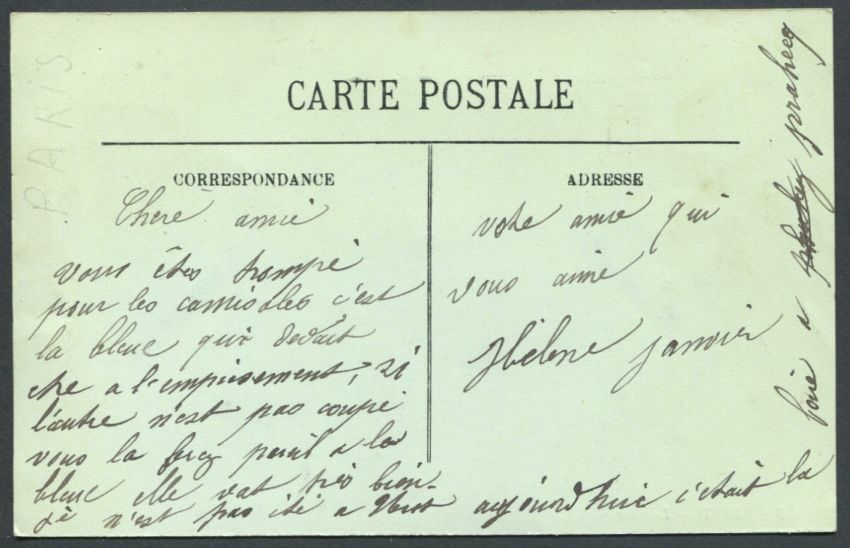 PARIS
CARTE POSTALE
CORRESPONDANCE
Chere amie
vous êtes trompé
pour les camisoles c'est
la bleue qui devait
etre a l'empiesement, si
l'autre n'est pas coupé
vous la ferez pareil a la
bleue elle vat très bien
je n'est pas été a Niort aujourd'hui c'était la
foire a prahecq
ADRESSE
votre amie qui
vous aime
Hélène Janvier